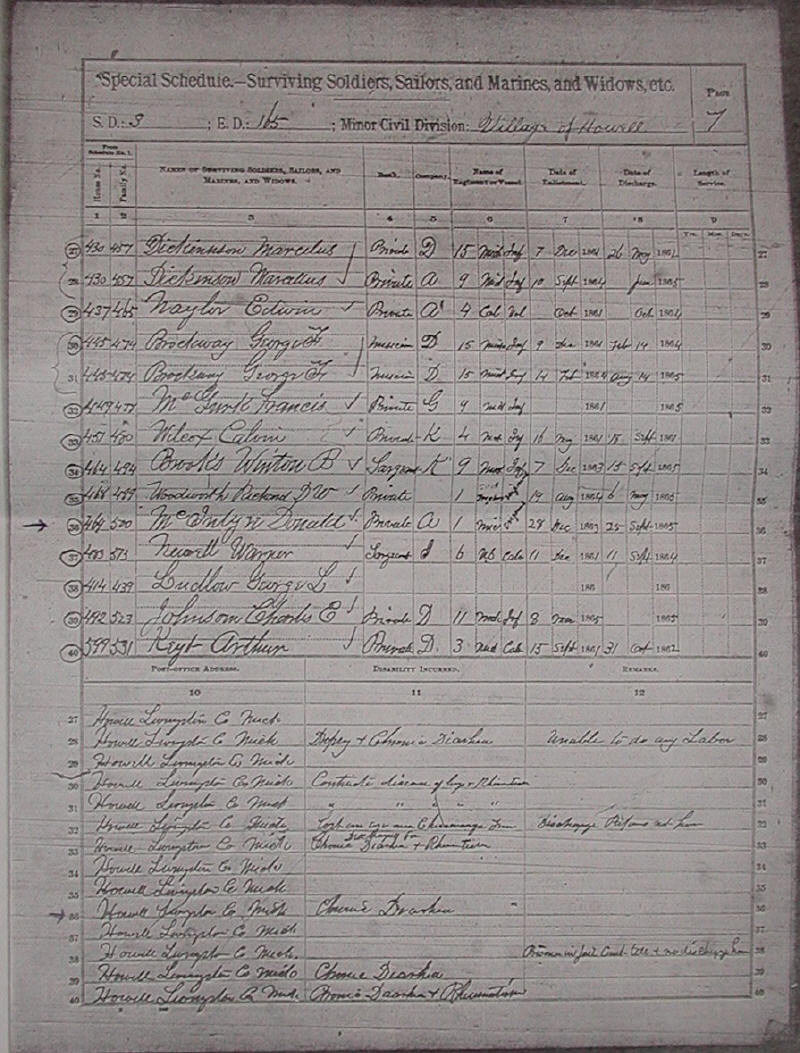 Special Schedule.—Surviving Soldiers, Sailors, and Marines, and Widows, etc.
Page 7
S. D.: 3 ; E. D.: 165 ; Minor Civil Division: Village of Howell
From Schedule No. 1.
House No. Family No. Names of Surviving Soldiers, Sailors, and Marines, and Widows. Rank. Company. Name of Regiment or Vessel. Date of Enlistment. Date of Discharge. Length of Service.
1 2 3 4 5 6 7 8 9
Yrs. Mos. Days.
27 430 457 Dickinson Marcelus Private D 15 Mich Inf 7 Dec 1861 26 1862 27
28 430 457 Dickinson Marcelus Private A 9 Mich Inf 10 Sept 1864 June 1865 28
29 437 465 Naylor Edwin Private A 4 Cal Vol Oct 1861 Oct 1864 29
30 445 474 Brockway George F Musician D 15 Mich Inf 9 Dec 1861 Feb 14 1864 30
31 445 474 Brockway George F Musician D 15 Mich Inf 14 Feb 1864 Aug 14 1865 31
32 449 477 Francis Private G 9 Mich Inf 1861 1865 32
33 457 480 Wilcox Calvin Private K 4 Mich Inf 16 1861 18 Sept 1861 33
34 464 494 Brooks Winton B Sargent K 9 Mich Inf 7 Dec 1863 15 Sept 1865 34
35 468 Woodworth D W Private 1 19 Aug 1864 6 1865 35
36 469 500 Donald Private A 1 28 Dec 1863 25 Sept 1865 36
37 573 Newell Warner Sargent I 6 11 Dec 1861 11 Sept 1864 37
38 414 439 Ludlow George L 186 186 38
39 492 523 Johnson Charles E Private D 11 Mich Inf 8 Mar 1865 1865 39
40 599 531 Keyt Arthur Private D 3 Mich Cal 15 Sept 1861 31 Oct 1862 40
Post-office Address. Disability Incurred. Remarks.
10 11 12
27 Howell Livingston Co Mich 27
28 Howell Livingston Co Mich Dropsy & Chronic Diarhea Unable to do any Labor 28
29 Howell Livingston Co Mich 29
30 Howell Livingston Co Mich disease of & Rheumatism 30
31 Howell Livingston Co Mich " " " " 31
32 Howell Livingston Co Lost one eye Discharge 32
33 Howell Livingston Co Mich Chronic Diarhea & Rheumatism 33
34 Howell Livingston Co Mich 34
35 Howell Livingston Co Mich 35
36 Howell Livingston Co Mich Chronic Diarhea 36
37 Howell Livingston Co Mich 37
38 Howell Livingston Co Mich. 38
39 Howell Livingston Co Mich Chronic Diarhea 39
40 Howell Livingston Co Mich Chronic Diarhea & Rheumatism 40